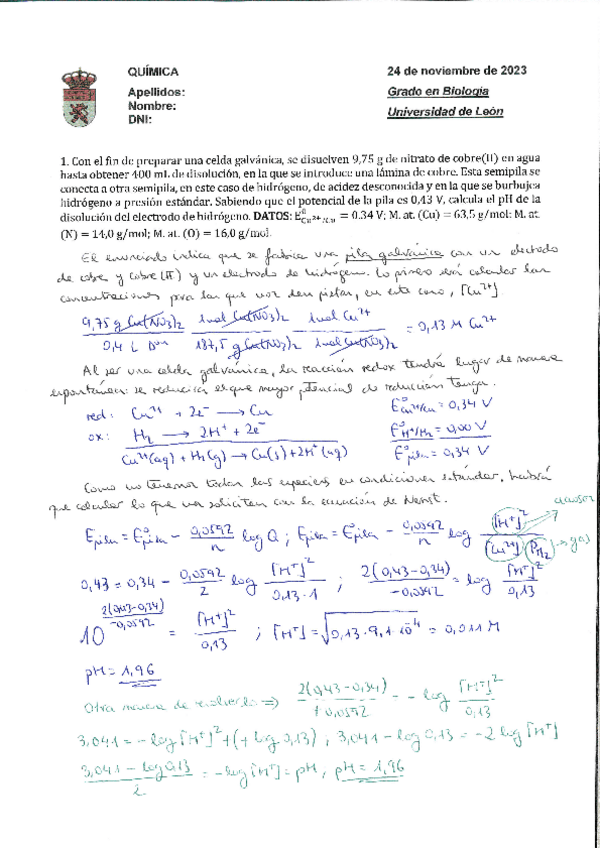 QUÍMICA
24 de noviembre de 2023
Apellidos:
Grado en Biología
Nombre:
Universidad de León
DNI:
1. Con el fin de preparar una celda galvánica, se disuelven 9,75 g de nitrato de cobre(II) en agua
hasta obtener 400 mL de disolución, en la que se introduce una lámina de cobre. Esta semipila se
conecta a otra semipila, en este caso de hidrógeno, de acidez desconocida y en la que se burbujea
hidrógeno a presión estándar. Sabiendo que el potencial de la pila es 0,43 V, calcula el pH de la
disolución del electrodo de hidrógeno. DATOS: E°Cu²⁺/Cu = 0.34 V; M. at. (Cu) = 63,5 g/mol; M. at.
(N) = 14,0 g/mol; M. at. (O) = 16,0 g/mol.
El enunciado indica que se fabrica una pila galvánica con un electrodo
de cobre y cobre (II) y un electrodo de hidrógeno. Lo primero será calcular las
concentraciones para las que nos den pistas, en este caso, [Cu²⁺]
9,75 g Cu(NO₃)₂ / 0,4 L Dón · 1 mol Cu(NO₃)₂ / 187,5 g Cu(NO₃)₂ · 1 mol Cu²⁺ / 1 mol Cu(NO₃)₂ = 0,13 M Cu²⁺
Al ser una celda galvánica, la reacción redox tendrá lugar de manera
espontánea: se reducirá el que mayor potencial de reducción tenga.
red: Cu²⁺ + 2e⁻ → Cu E°Cu²⁺/Cu = 0,34 V
ox: H₂ → 2H⁺ + 2e⁻ E°H⁺/H₂ = 0,00 V
Cu²⁺(aq) + H₂(g) → Cu(s) + 2H⁺(aq) E°pila = 0,34 V
Como no tenemos todas las especies en condiciones estándar, habrá
que calcular lo que nos solicitan con la ecuación de Nernst.
Epila = E°pila - 0,0592/n log Q ; Epila = E°pila - 0,0592/n log [H⁺]²/[Cu²⁺] PH₂ → gas
0,43 = 0,34 - 0,0592/2 log [H⁺]²/0,13·1 ; 2(0,43-0,34)/-0,0592 = log [H⁺]²/0,13
10^(2(0,43-0,34)/-0,0592) = [H⁺]²/0,13 ; [H⁺] = √0,13·9,1·10⁻⁴ = 0,011 M
pH = 1,96
Otra manera de resolverlo ⇒ 2(0,43-0,34)/+0,0592 = - log [H⁺]²/0,13
3,041 = -log[H⁺]² + (+log 0,13) ; 3,041 - log 0,13 = -2 log [H⁺]
3,041 - log 0,13 / 2 = -log[H⁺] = pH, pH = 1,96